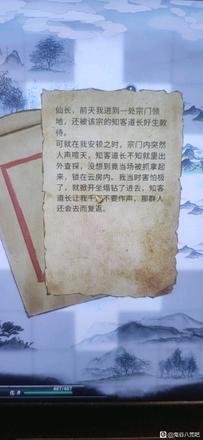 仙长，前天我进到一处宗门领
地，还被该宗的知客道长好生款
待。
可就在我安顿之时，宗门内突然
人声喧天，知客道长不知就里出
外查探，没想到竟当场被抓拿起
来，锁在云房内。我当时害怕极
了，就掀开坐榻钻了进去，知客
道长让我千万不要作声，那群人
还会去而复返。
467/467
@鬼谷八荒吧